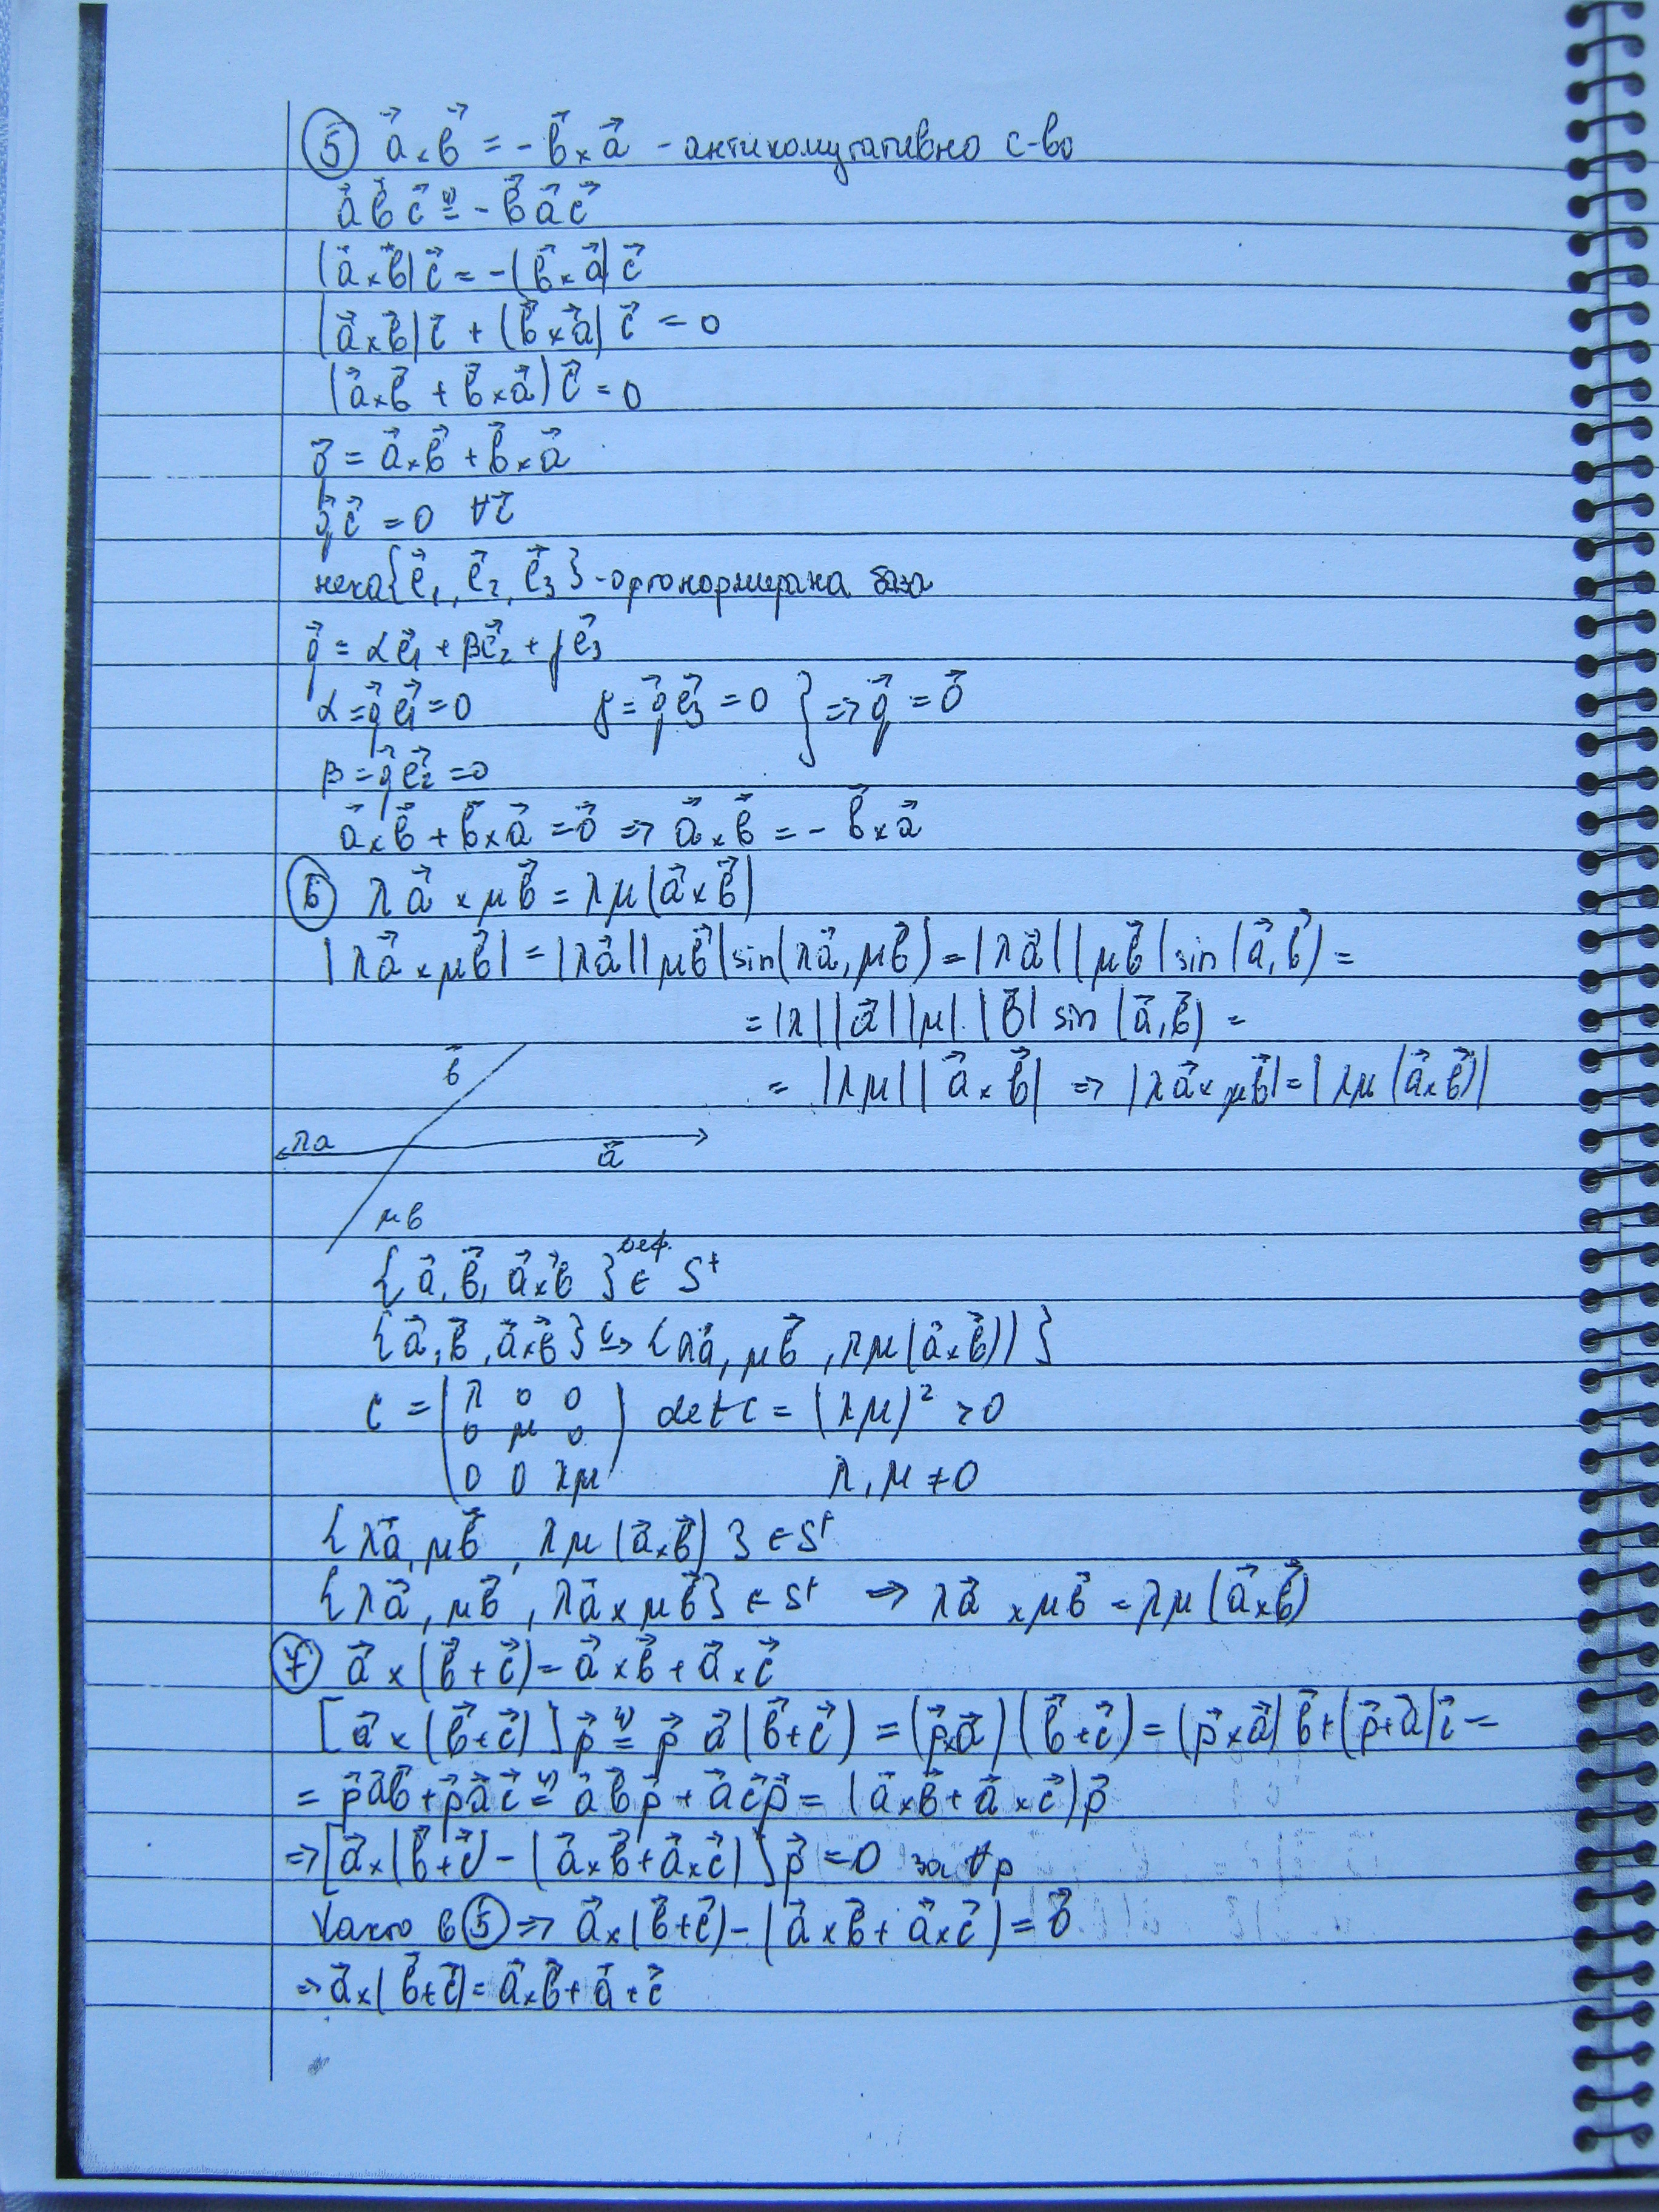 ⑤ a⃗×b⃗ = -b⃗×a⃗ - антикомутативно с-во
a⃗ b⃗ c⃗ =⁴⁾ -b⃗ a⃗ c⃗
(a⃗×b⃗)c⃗ = -(b⃗×a⃗)c⃗
(a⃗×b⃗)c⃗ + (b⃗×a⃗)c⃗ = 0
(a⃗×b⃗ + b⃗×a⃗)c⃗ = 0
q⃗ = a⃗×b⃗ + b⃗×a⃗
q⃗c⃗ = 0 ∀c⃗
нека {e⃗₁, e⃗₂, e⃗₃} - ортонормирана база
q⃗ = αe⃗₁ + βe⃗₂ + γe⃗₃
α = q⃗e⃗₁ = 0 γ = q⃗e⃗₃ = 0 } => q⃗ = 0⃗
β = q⃗e⃗₂ = 0
a⃗×b⃗ + b⃗×a⃗ = 0⃗ => a⃗×b⃗ = - b⃗×a⃗
⑥ λa⃗ × μb⃗ = λμ(a⃗×b⃗)
|λa⃗×μb⃗| = |λa⃗||μb⃗|sin(λa⃗, μb⃗) = |λa⃗||μb⃗|sin(a⃗, b⃗) =
= |λ||a⃗||μ|.|b⃗| sin(a⃗, b⃗) =
= |λμ||a⃗×b⃗| => |λa⃗×μb⃗| = |λμ(a⃗×b⃗)|
b⃗
λa a⃗
μb
{a⃗, b⃗, a⃗×b⃗} деф. ∈ S⁺
{a⃗, b⃗, a⃗×b⃗} ᶜ→ {λa⃗, μb⃗, λμ(a⃗×b⃗)}
C = (λ 0 0 detC = (λμ)² > 0
0 μ 0
0 0 λμ) λ, μ ≠ 0
{λa⃗, μb⃗, λμ(a⃗×b⃗)} ∈ S⁺
{λa⃗, μb⃗, λa⃗×μb⃗} ∈ S⁺ => λa⃗ × μb⃗ = λμ(a⃗×b⃗)
⑦ a⃗×(b⃗+c⃗) = a⃗×b⃗ + a⃗×c⃗
[a⃗×(b⃗+c⃗)]p⃗ =⁴⁾ p⃗ a⃗(b⃗+c⃗) = (p⃗×a⃗)(b⃗+c⃗) = (p⃗×a⃗)b⃗+(p⃗+a⃗)c⃗ =
= p⃗a⃗b⃗ + p⃗a⃗c⃗ =⁴⁾ a⃗b⃗p⃗ + a⃗c⃗p⃗ = (a⃗×b⃗ + a⃗×c⃗)p⃗
=> [a⃗×(b⃗+c⃗) - (a⃗×b⃗+a⃗×c⃗)]p⃗ = 0 за ∀p
Както в ⑤ => a⃗×(b⃗+c⃗) - (a⃗×b⃗ + a⃗×c⃗) = 0⃗
=> a⃗×(b⃗+c⃗) = a⃗×b⃗ + a⃗+c⃗